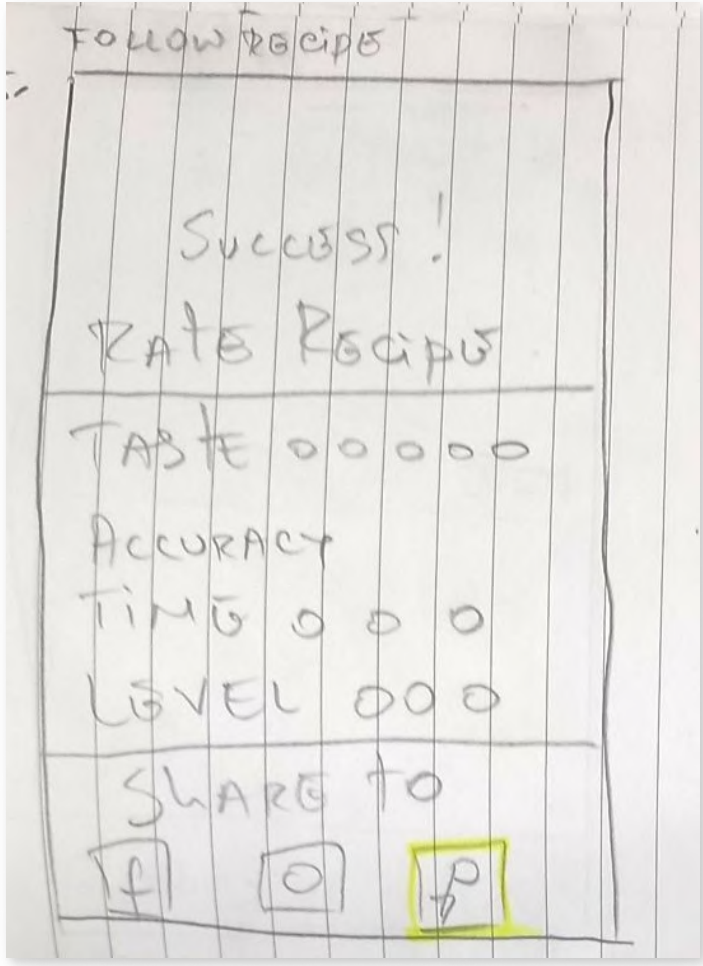 FOLLOW RECIPE
SUCCESS!
RATE RECIPE
TASTE O O O O O
ACCURACY
TIME O O O
LEVEL O O O
SHARE TO
f O p